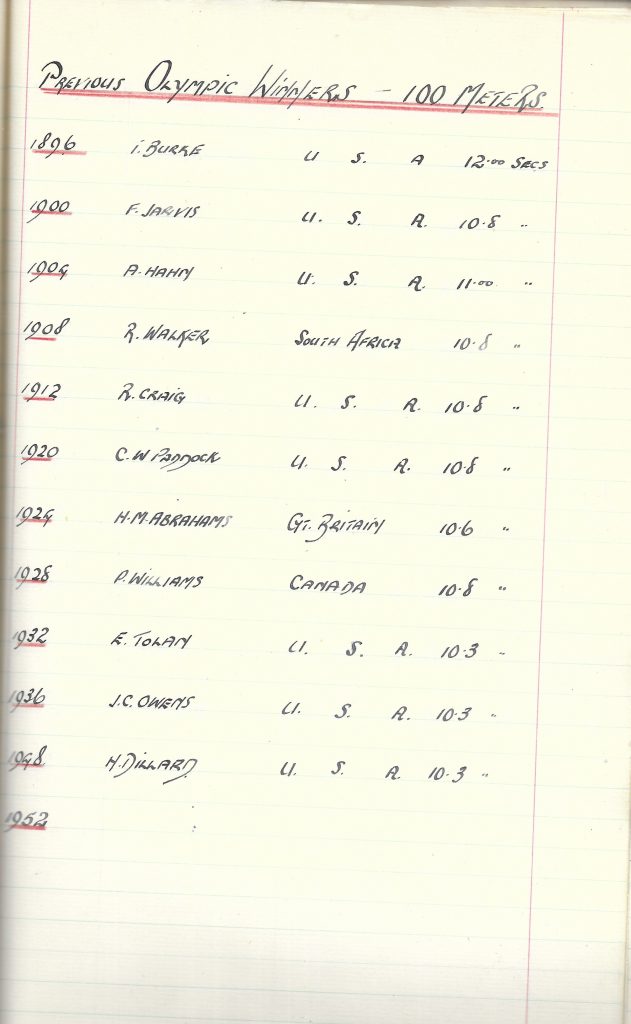 PREVIOUS OLYMPIC WINNERS - 100 METERS.
1896 I. BURKE U S. A 12.00 SECS
1900 F. JARVIS U. S. A. 10.8 "
1904 A. HAHN U. S. A. 11.00 "
1908 R. WALKER SOUTH AFRICA 10.8 "
1912 R. CRAIG U. S. A. 10.8 "
1920 C. W PADDOCK U. S. A. 10.8 "
1924 H. M. ABRAHAMS GT. BRITAIN 10.6 "
1928 P. WILLIAMS CANADA 10.8 "
1932 E. TOLAN U. S. A. 10.3 "
1936 J. C. OWENS U. S. A. 10.3 "
1948 H. DILLARD U. S. A. 10.3 "
1952